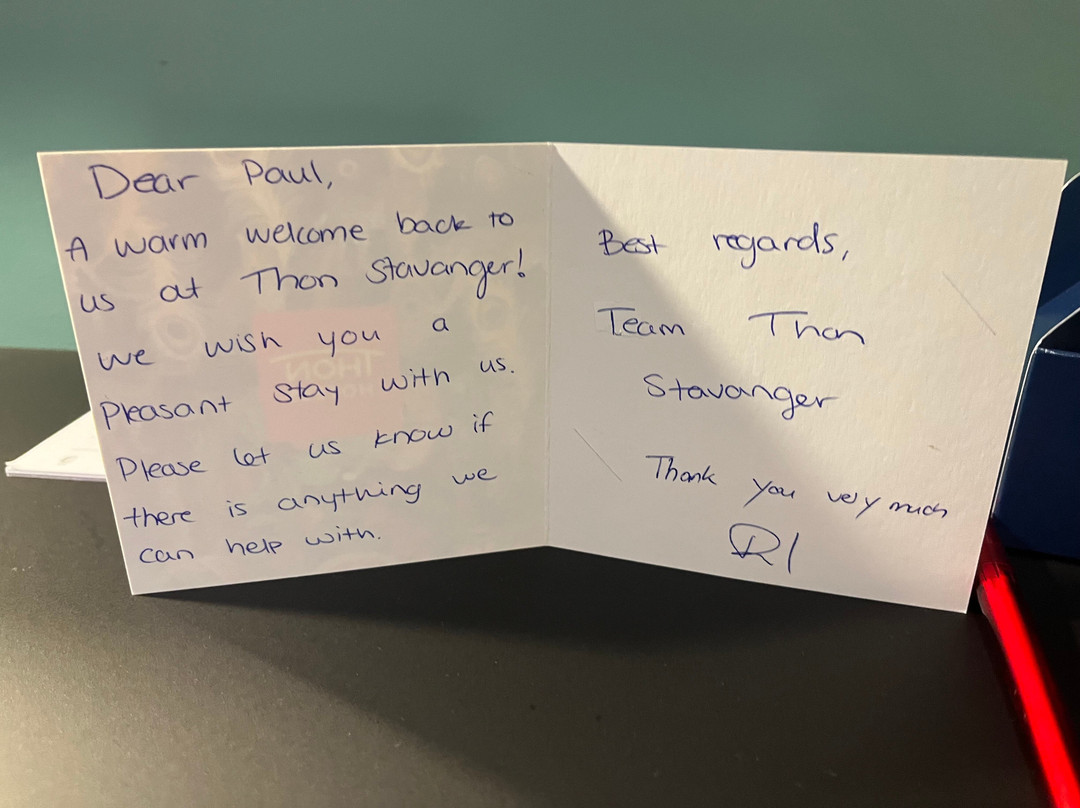 Dear Paul,
A warm welcome back to
us at Thon Stavanger!
we wish you a
Pleasant stay with us.
Please let us know if
there is anything we
can help with.
Best regards,
Team Thon
Stavanger
Thank you very much
THON